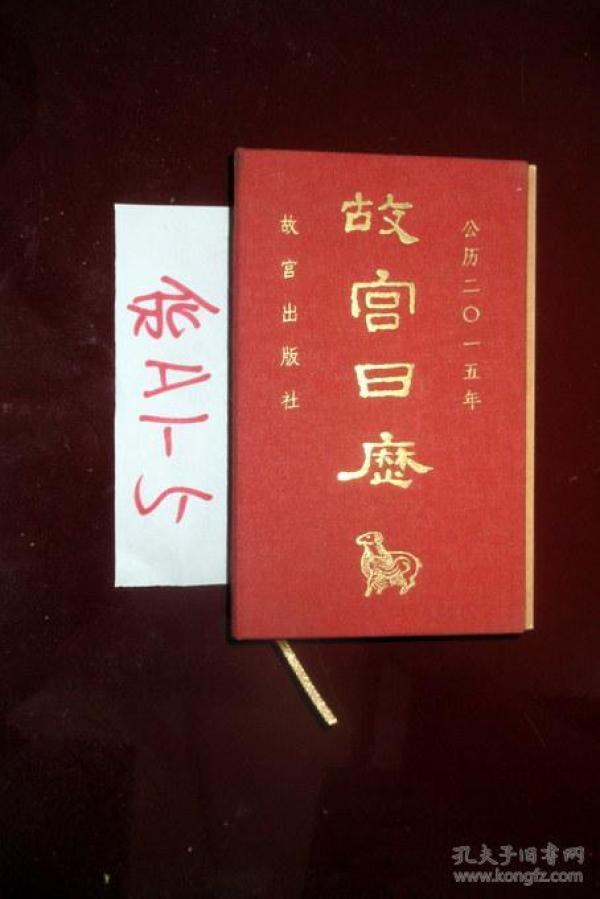 公历二〇一五年
故宫日历
故宫出版社
A1-5
孔夫子旧书网
www.kongfz.com